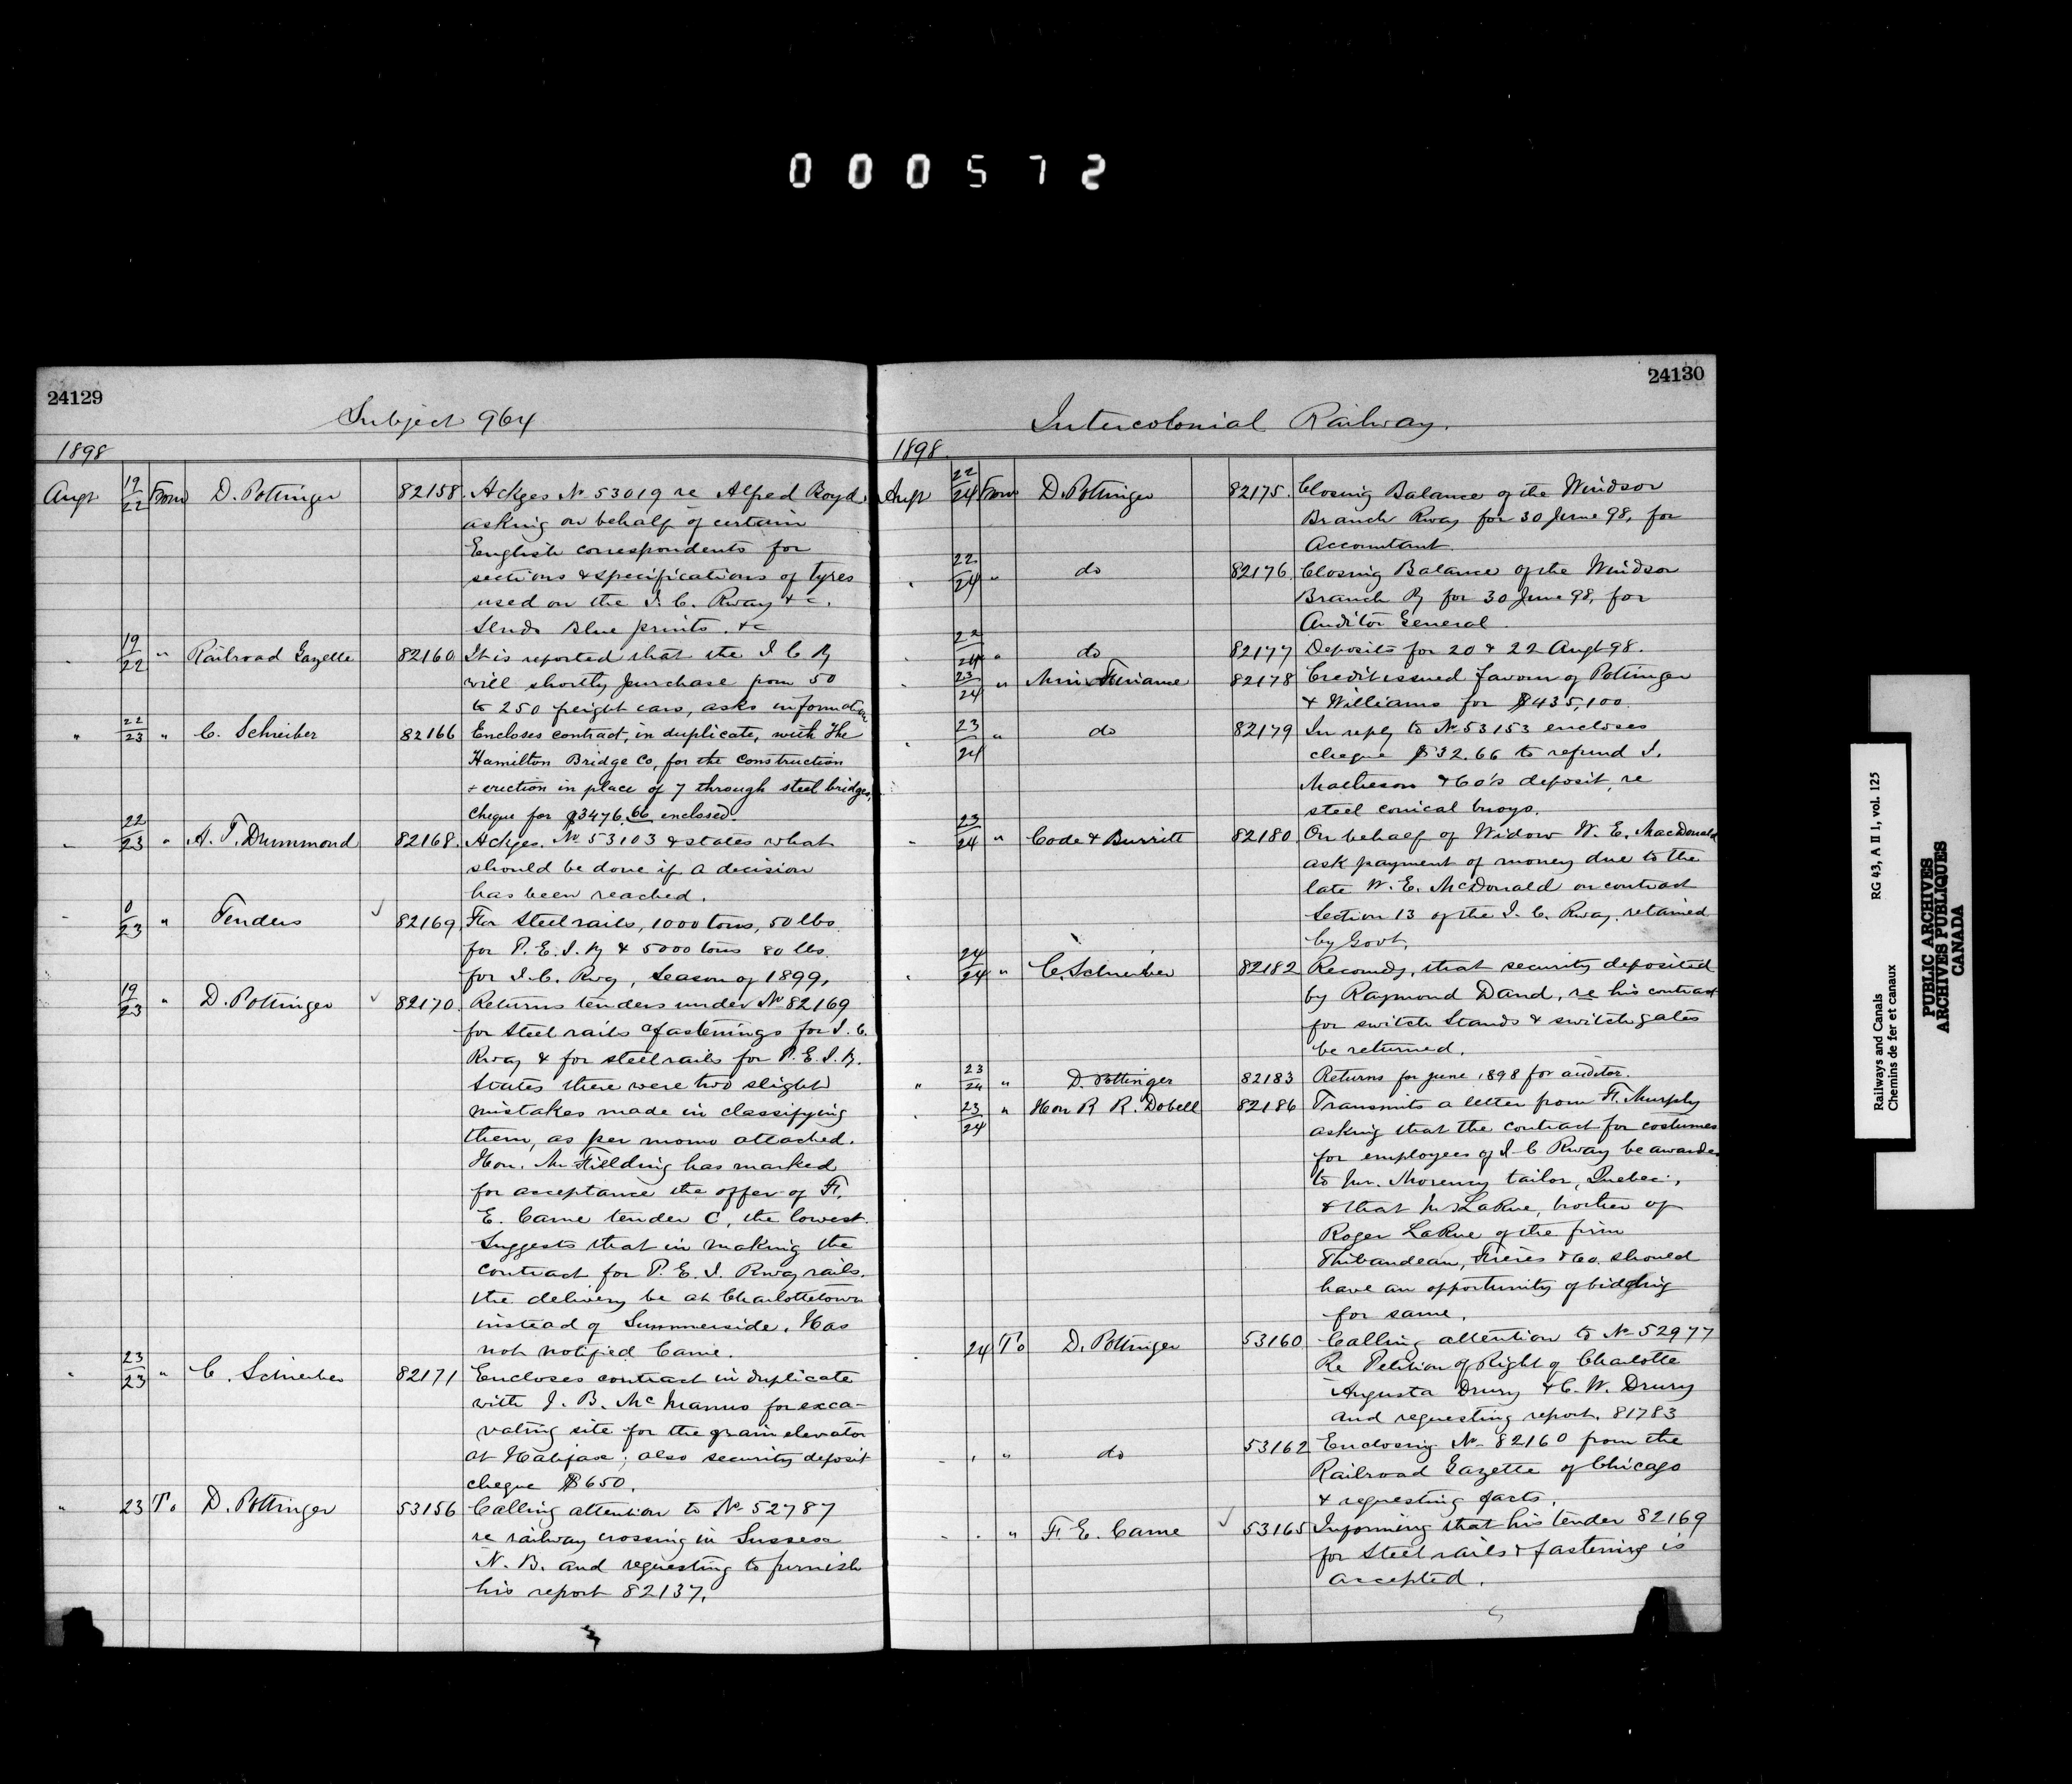 000572
24129
Subject 964
1898
Augt 19/22 From D. Pottinger 82158 Ackges No 53019 re Alfred Boyd
asking on behalf of certain
English correspondents for
sections & specifications of tyres
used on the I. C. Rway &c.
Sends Blue prints. &c
" 19/22 " Railroad Gazette 82160 It is reported that the I C Ry
will shortly purchase from 50
to 250 freight cars, asks information
" 22/23 " C. Schreiber 82166 Encloses contract, in duplicate, with The
Hamilton Bridge Co, for the construction
& erection in place of 7 through steel bridges,
cheque for $3476.66 enclosed
" 22/23 " A. T. Drummond 82168 Ackges. No 53103 & states what
should be done if a decision
has been reached.
" 0/23 " Tenders ✓ 82169 For Steel rails, 1000 tons, 50 lbs.
for P. E. I. Ry & 5000 tons 80 lbs.
for I. C. Rwy, Season of 1899,
19/23 " D. Pottinger ✓ 82170 Returns tenders under No 82169
for Steel rails & fastenings for I. C.
Rway & for steel rails for P. E. I. Ry.
States there were two slight
mistakes made in classifying
them, as per memo attached.
Hon. Mr Fielding has marked
for acceptance the offer of F.
E. Came tender C, the lowest.
Suggests that in making the
contract for P. E. I. Rway rails.
the delivery be at Charlottetown
instead of Summerside. Has
not notified Came.
" 23/23 " C. Schreiber 82171 Encloses contract in duplicate
with J. B. McManus for exca-
vating site for the grain elevator
at Halifax; also security deposit
cheque $650.
" 23 To D. Pottinger 53156 Calling attention to No 52787
re railway crossing in Sussex
N. B. and requesting to furnish
his report 82137.
24130
Intercolonial Railway.
1898
Augt 22/24 From D. Pottinger 82175 Closing Balance of the Windsor
Branch Rway for 30 June 98, for
Accountant.
" 22/24 " do 82176 Closing Balance of the Windsor
Branch Ry for 30 June 98, for
Auditor General.
" 22/24 " do 82177 Deposits for 20 & 22 Augt 98.
" 23/24 " Min Finance 82178 Credit issued favour of Pottinger
& Williams for $435,100.
" 23/24 " do 82179 In reply to No 53153 encloses
cheque $32.66 to refund I.
Matheson & Co's deposit, re
steel conical buoys.
" 23/24 " Code & Burritt 82180 On behalf of Widow W. E. MacDonald
ask payment of money due to the
late W. E. McDonald on contract
Section 13 of the I. C. Rway. retained
by Govt.
" 24/24 " C. Schreiber 82182 Recomdg, that security deposited
by Raymond Dand, re his contract
for switch stands & switch gates
be returned.
" 23/24 " D. Pottinger 82183 Returns for June 1898 for auditor.
" 23/24 " Hon R R. Dobell 82186 Transmits a letter from F. Murphy
asking that the contract for costumes
for employees of I C Rway be awarded
to Mr. Morency tailor, Quebec,
& that Mr LaRue, brother of
Roger LaRue of the firm
Thibaudeau, Freres & Co. should
have an opportunity of bidding
for same.
" 24 To D. Pottinger 53160 Calling attention to No 52977
Re Petition of Right of Charlotte
Augusta Drury & C. W. Drury
and requesting report. 81783
" " " do 53162 Enclosing No 82160 from the
Railroad Gazette of Chicago
& requesting facts.
" " " F. E. Came ✓ 53165 Informing that his tender 82169
for Steel rails & fastening is
accepted.
Railways and Canals RG 43, A II 1, vol. 125
Chemins de fer et canaux
PUBLIC ARCHIVES
ARCHIVES PUBLIQUES
CANADA